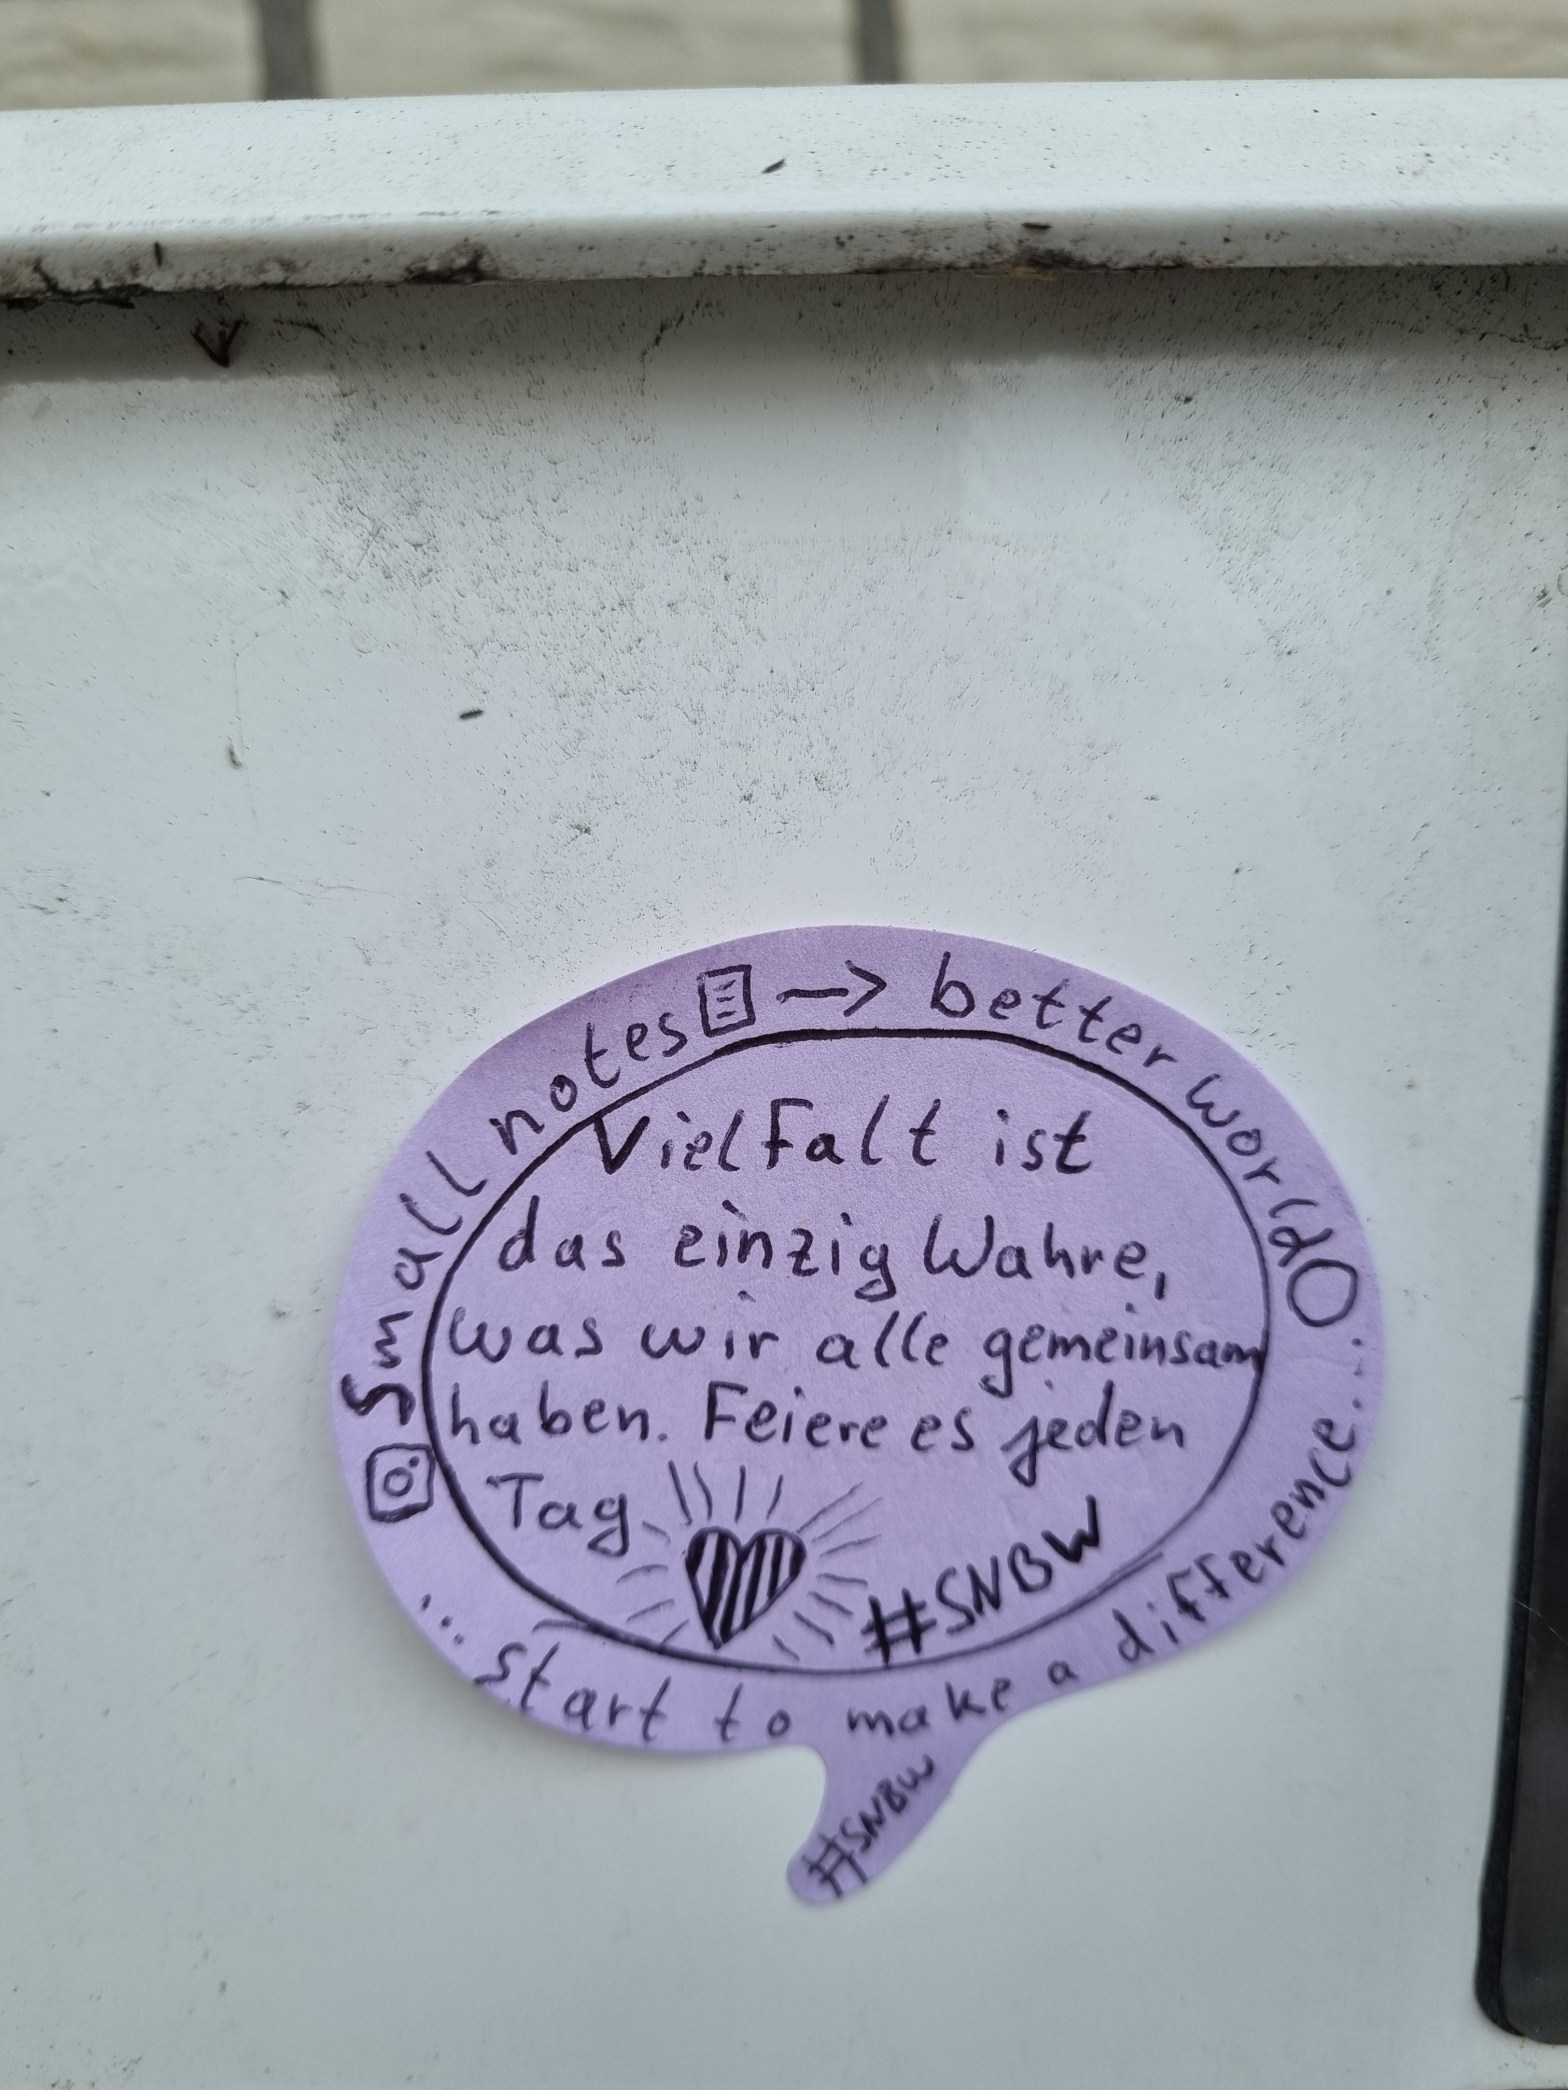 Small notes → better world
Vielfalt ist
das einzig Wahre,
was wir alle gemeinsam
haben. Feiere es jeden
Tag
#SNBW
...start to make a difference...
#SNBW